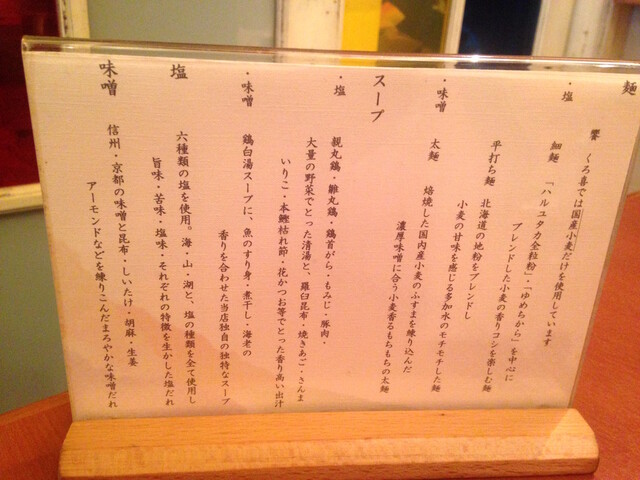 麺
饗 くろ喜では国産小麦だけを使用しています
・塩
細麺 「ハルユタカ全粒粉」・「ゆめちから」を中心に
ブレンドした小麦の香りコシを楽しむ麺
平打ち麺 北海道の地粉をブレンドし
小麦の甘味を感じる多加水のモチモチした麺
・味噌
太麺 焙焼した国内産小麦のふすまを練り込んだ
濃厚味噌に合う小麦香るもちもちの太麺
スープ
・塩
親丸鶏・雛丸鶏・鶏首がら・もみじ・豚肉・
大量の野菜でとった清湯と、羅臼昆布・焼きあご・さんま
いりこ・本鰹枯れ節・花かつお等でとった香り高い出汁
・味噌
鶏白湯スープに、魚のすり身・煮干し・海老の
香りを合わせた当店独自の独特なスープ
塩
六種類の塩を使用。海・山・湖と、塩の種類を全て使用し
旨味・苦味・塩味・それぞれの特徴を生かした塩だれ
味噌
信州・京都の味噌と昆布・しいたけ・胡麻・生姜
アーモンドなどを練りこんだまろやかな味噌だれ